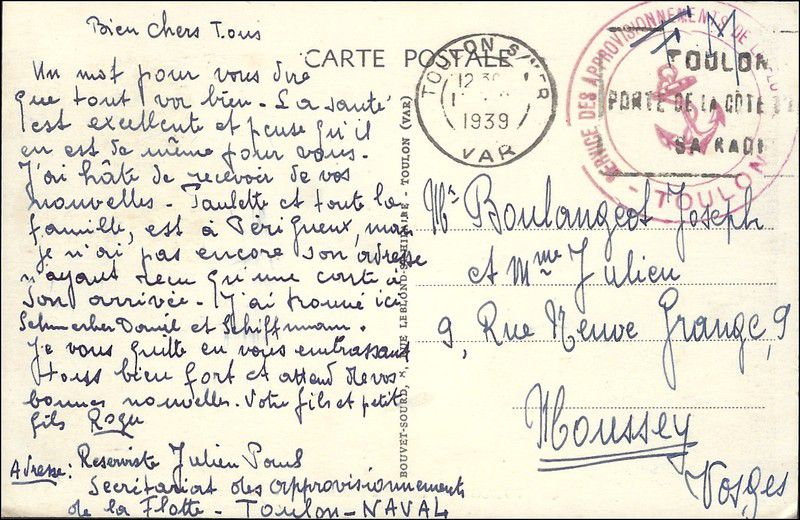 Bien Chers Tous
CARTE POSTALE
Un mot pour vous dire
que tout va bien - La santé
est excellente et pense qu'il
en est de même pour vous.
J'ai hâte de recevoir de vos
nouvelles - Paulette et toute la
famille, est à Périgueux, mais
je n'ai pas encore son adresse
n'ayant reçu qu'une carte à
son arrivée - J'ai trouvé ici
Schmerber Daniel et Schiffmann.
Je vous quitte en vous embrassant
tous bien fort et attend de vos
bonnes nouvelles. Votre fils et petit
fils
Adresse: Reserviste Julien Paul
Secrétariat des approvisionnements
de la Flotte - Toulon-NAVAL
BOUVET-SOURD, RUE LEBLOND-SAINT-HILAIRE - TOULON (VAR)
TOULON S/MER
1939
VAR
F. M
TOULON
PORTE DE LA CÔTE
SA RADE
SERVICE DES APPROVISIONNEMENTS DE LA
- TOULON -
Mrs Boulangeot Joseph
et Mme Julien
9, Rue Neuve Grange, 9
Moussey
Vosges